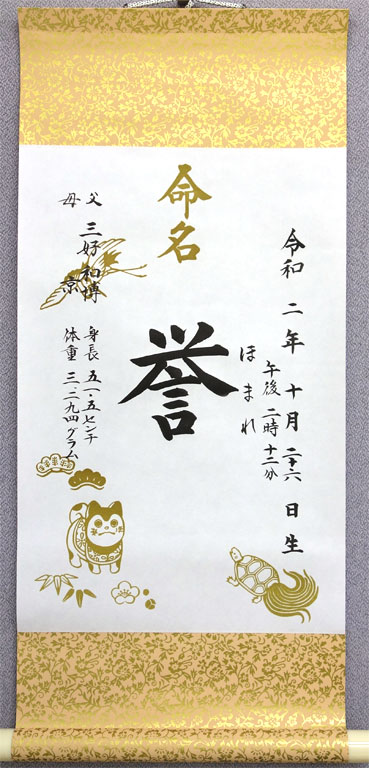 令和二年十月二十六日生
午後二時十二分
命名
誉
ほまれ
父 三好和博
母 京
身長 五一・五センチ
体重 三・二九四グラム